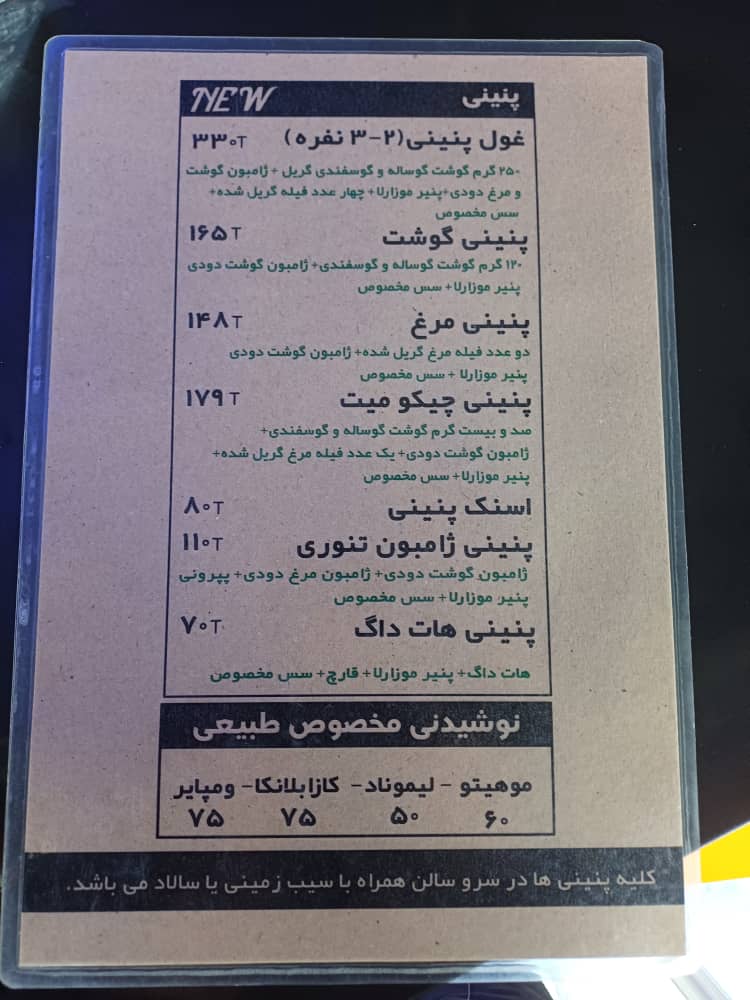 پنینی NEW
غول پنینی(۲-۳ نفره) ۳۳۰T
۲۵۰ گرم گوشت گوساله و گوسفندی گریل + ژامبون گوشت
و مرغ دودی+پنیر موزارلا+ چهار عدد فیله گریل شده+
سس مخصوص
پنینی گوشت ۱۶۵T
۱۲۰ گرم گوشت گوساله و گوسفندی+ ژامبون گوشت دودی
پنیر موزارلا+ سس مخصوص
پنینی مرغ ۱۴۸T
دو عدد فیله مرغ گریل شده+ ژامبون گوشت دودی
پنیر موزارلا + سس مخصوص
پنینی چیکو میت ۱۷۹T
صد و بیست گرم گوشت گوساله و گوسفندی+
ژامبون گوشت دودی+ یک عدد فیله مرغ گریل شده+
پنیر موزارلا+ سس مخصوص
اسنک پنینی ۸۰T
پنینی ژامبون تنوری ۱۱۰T
ژامبون گوشت دودی+ ژامبون مرغ دودی+ پپرونی
پنیر موزارلا+ سس مخصوص
پنینی هات داگ ۷۰T
هات داگ+ پنیر موزارلا+ قارچ+ سس مخصوص
نوشیدنی مخصوص طبیعی
موهیتو - لیموناد- کازابلانکا- ومپایر
۶۰ ۵۰ ۷۵ ۷۵
کلیه پنینی ها در سرو سالن همراه با سیب زمینی یا سالاد می باشد.